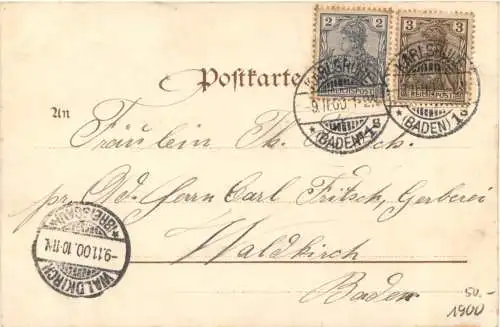 2 3
REICHSPOST REICHSPOST
Postkarte
KARLSRUHE
-9.11.00.
*(BADEN)* 1s
KARLSRUHE
(BADEN) 1s
An
Fräulein Th.
pr. Ad. Herrn Carl Fritsch, Gerberei
Waldkirch
Baden
*(BREISGAU)*
-9.11.00.10-11V.
WALDKIRCH
50.-
1900